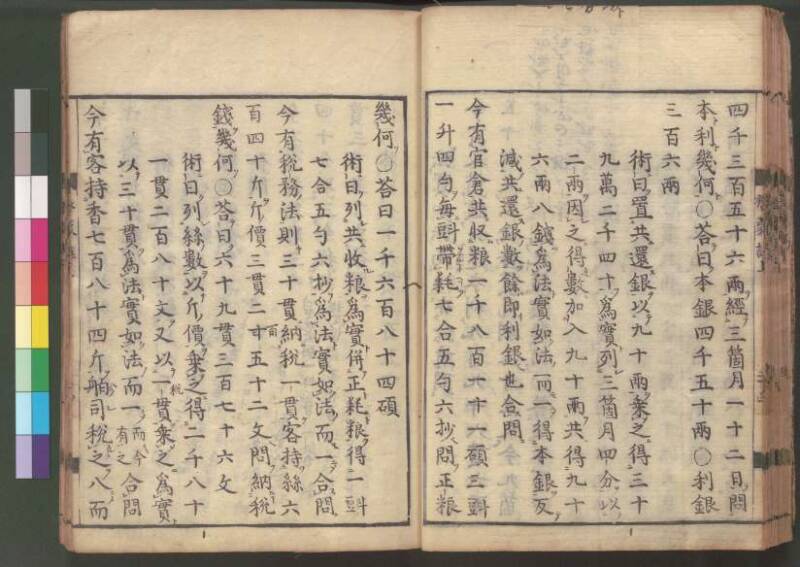 四千三百五十六兩經三箇月一十二日問
本利幾何〇荅曰本銀四千五十兩〇利銀
三百六兩
術曰置共還銀以九十兩乗之得三十
九萬二千四十爲實列三箇月四分以
二兩因之得數加入九十兩共得九十
六兩八錢爲法實如法而一得本銀反
減共還銀數餘即利銀也合問
今有官倉共収粮一千八百六十一碩三斞
一升四勺每斞帶耗七合五勺六抄問正粮
幾何〇荅曰一千六百八十四碩
術曰列共收粮爲實併正耗粮得一斞
七合五勺六抄爲法實如法而一合問
今有稅務法則三十貫納稅一貫客持絲六
百四十斤斤價三貫二百五十二文問納稅
錢幾何〇荅曰六十九貫三百七十六文
術曰列絲數以斤價乗之得二千八十
一貫二百八十文又以一貫乗之爲實
以三十貫爲法實如法而一合問
今有客持香七百八十四斤舶司稅之八而